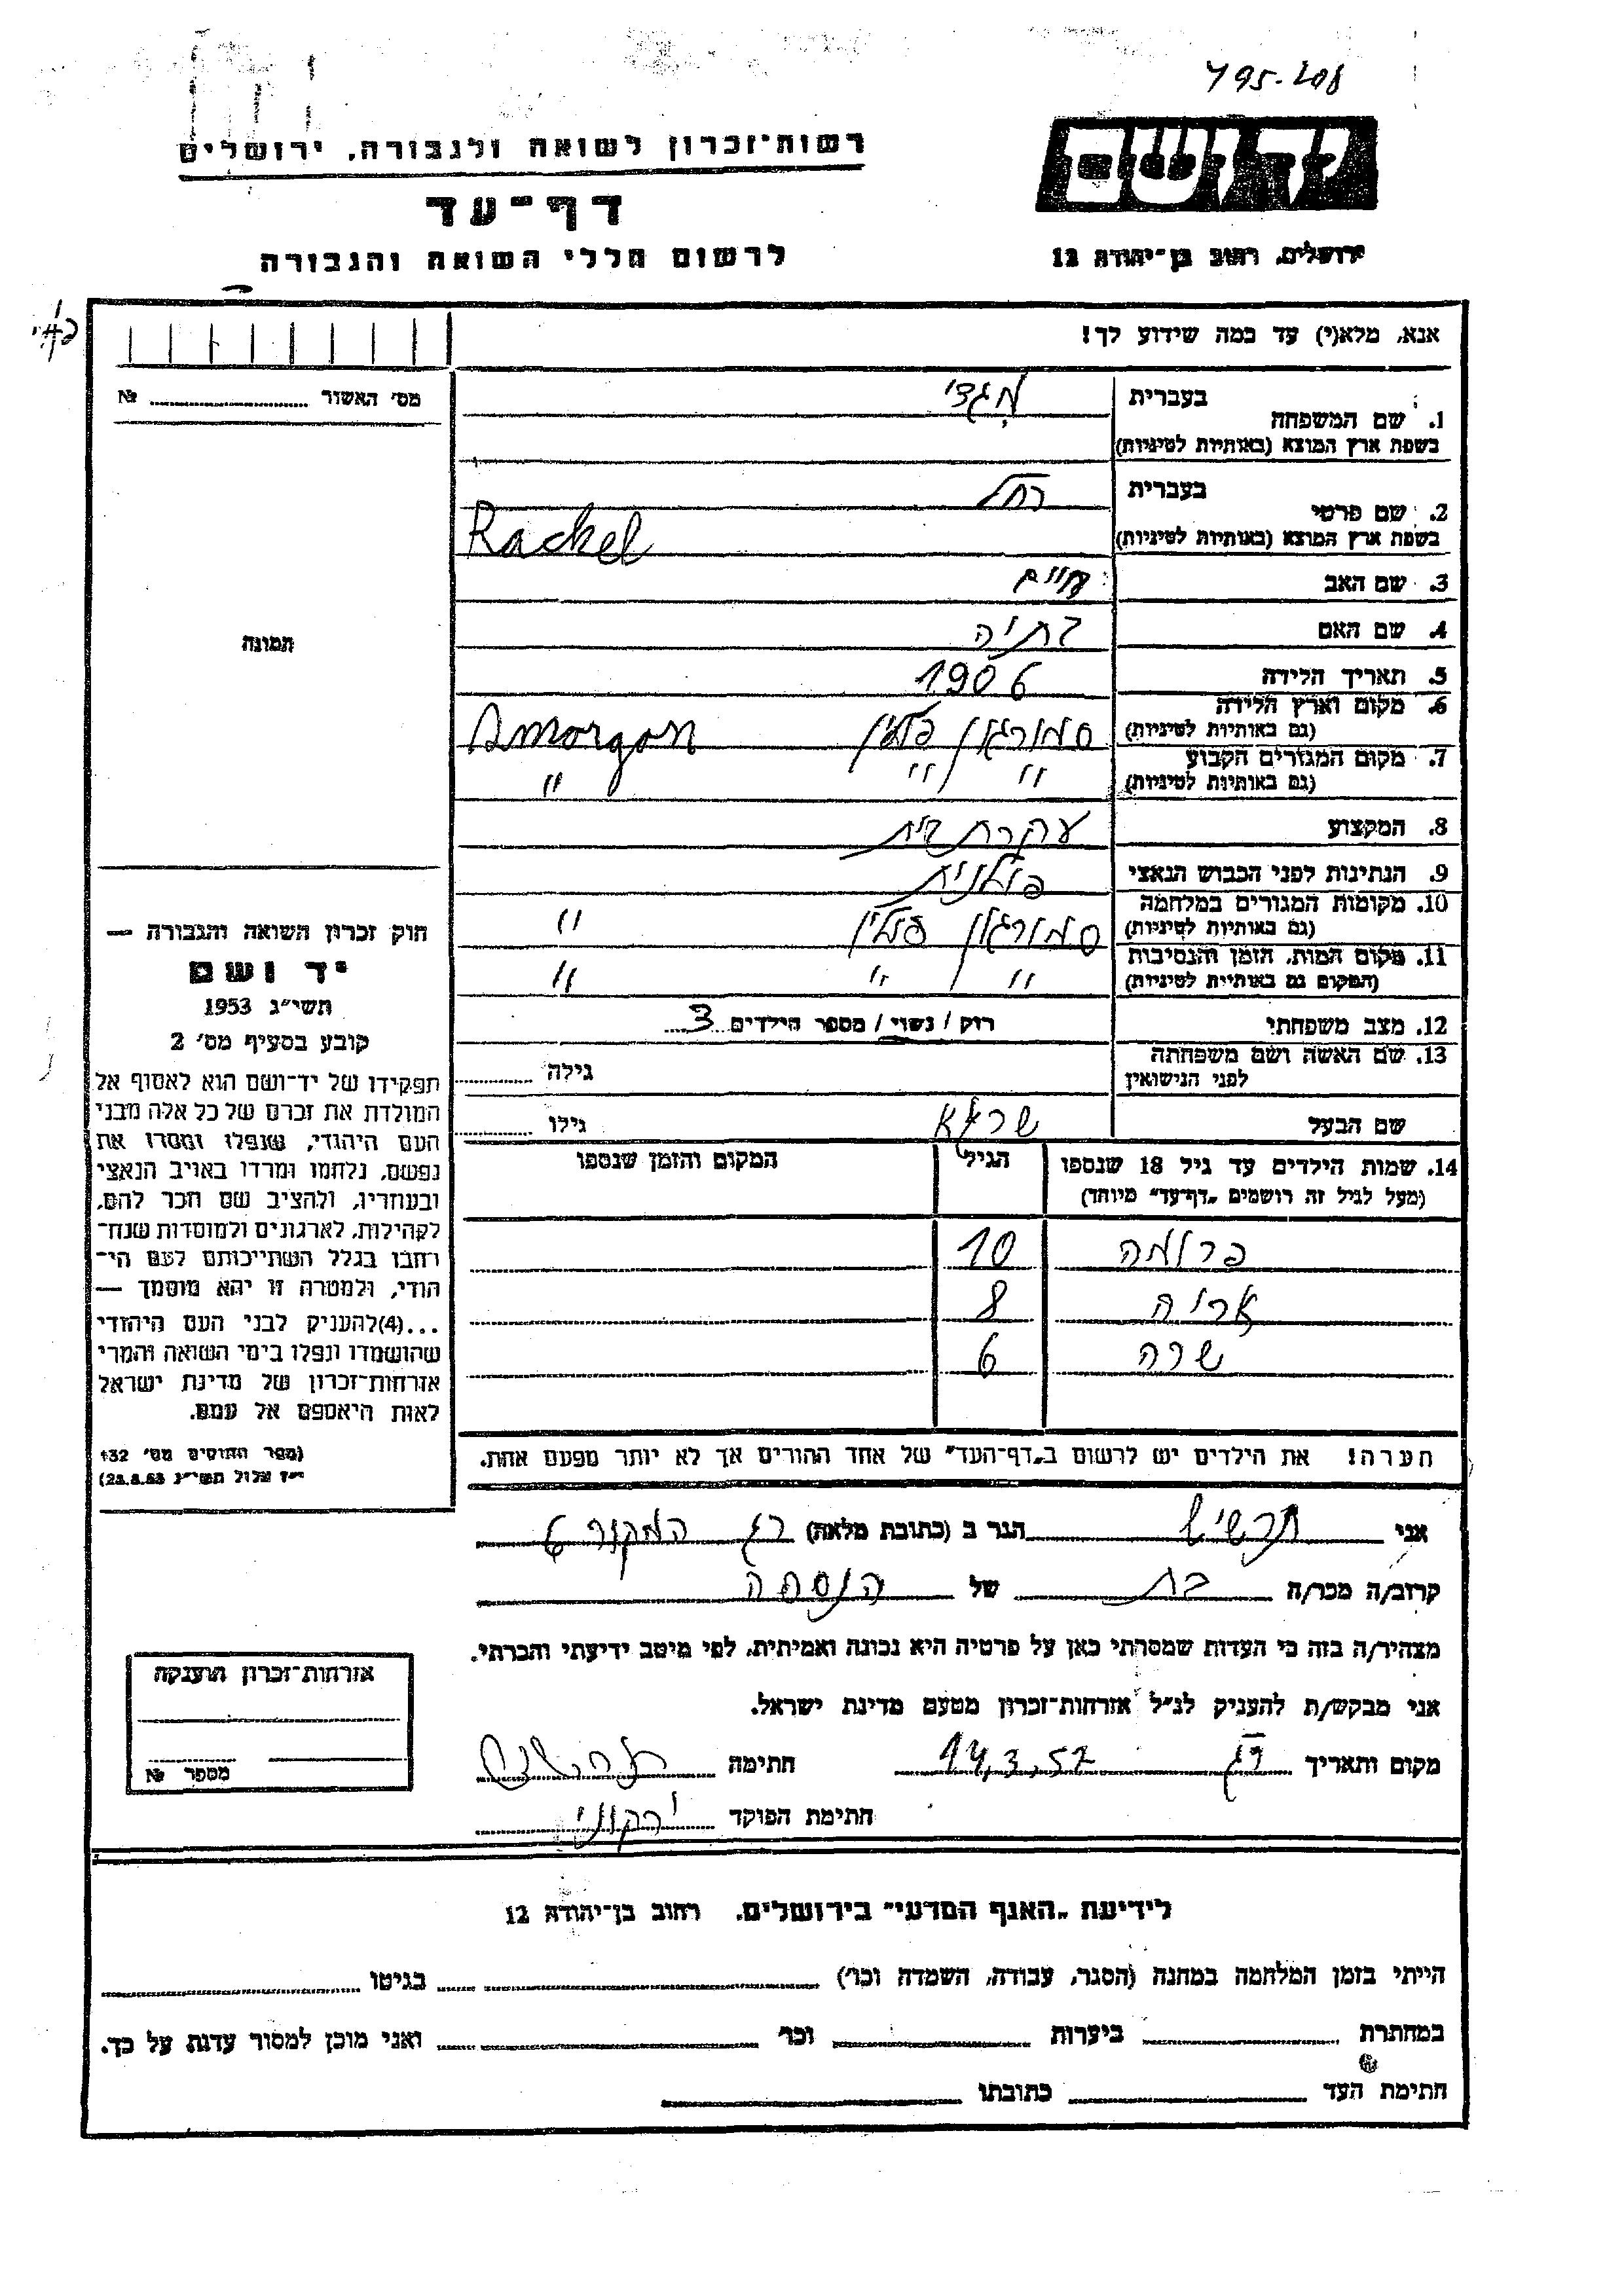 495-208
רשות-זכרון לשואה ולגבורה, ירושלים
יד ושם
דף-עד
לרשום חללי השואה והגבורה
ירושלים, רחוב בן-יהודה 12
אנא, מלא(י) עד כמה שידוע לך!
מס' האשור № ........
1. שם המשפחה בעברית
בשפת ארץ המוצא (באותיות לטיניות)
2. שם פרטי בעברית רחל
בשפת ארץ המוצא (באותיות לטיניות) Rachel
3. שם האב חיים
4. שם האם בתיה
5. תאריך הלידה 1906
6. מקום וארץ הלידה סמורגון פולין Smorgon
(גם באותיות לטיניות)
7. מקום המגורים הקבוע " " "
(גם באותיות לטיניות)
8. המקצוע עקרת בית
9. הנתינות לפני הכבוש הנאצי פולנית
10. מקומות המגורים במלחמה סמורגון פולין "
(גם באותיות לטיניות)
11. מקום המות, הזמן והנסיבות " " "
(המקום גם באותיות לטיניות)
12. מצב משפחתי רוק / נשוי / מספר הילדים 3
13. שם האשה ושם משפחתה גילה
לפני הנישואין
שם הבעל שרגא גילו
14. שמות הילדים עד גיל 18 שנספו הגיל המקום והזמן שנספו
(מעל לגיל זה רושמים "דף-עד" מיוחד)
פרומה 10
אריה 8
שרה 6
הערה! את הילדים יש לרשום ב"דף-העד" של אחד ההורים אך לא יותר מפעם אחת.
תמונה
חוק זכרון השואה והגבורה —
יד ושם
תשי"ג 1953
קובע בסעיף מס' 2
תפקידו של יד-ושם הוא לאסוף אל
המולדת את זכרם של כל אלה מבני
העם היהודי, שנפלו ומסרו את
נפשם, נלחמו ומרדו באויב הנאצי
ובעוזריו, ולהציב שם וזכר להם,
לקהילות, לארגונים ולמוסדות שנח-
רחבו בגלל השתייכותם לעם הי-
הודי, ולמטרה זו יהא מוסמך —
...(4)להעניק לבני העם היהודי
שהושמדו ונפלו בימי השואה והמרי
אזרחות-זכרון של מדינת ישראל
לאות היאספם אל עמם.
(ספר החוקים מס' 132
י"ז אלול תשי"ג 28.8.53)
אני הגר ב (כתובת מלאה) רג המקור 6
קרוב/ה מכר/ה בת של הנספה
מצהיר/ה בזה כי העדות שמסרתי כאן על פרטיה היא נכונה ואמיתית, לפי מיטב ידיעתי והכרתי.
אני מבקש/ת להעניק לנ"ל אזרחות-זכרון מטעם מדינת ישראל.
מקום ותאריך רג 14,3,57 חתימה
חתימת הפוקד ירקוני
אזרחות-זכרון הוענקה
מספר №
לידיעת "האגף המדעי" בירושלים, רחוב בן-יהודה 12
הייתי בזמן המלחמה במחנה (הסגר, עבודה, השמדה וכו') בגיטו
במחתרת ביערות וכו' ואני מוכן למסור עדות על כך.
חתימת העד כתובתו